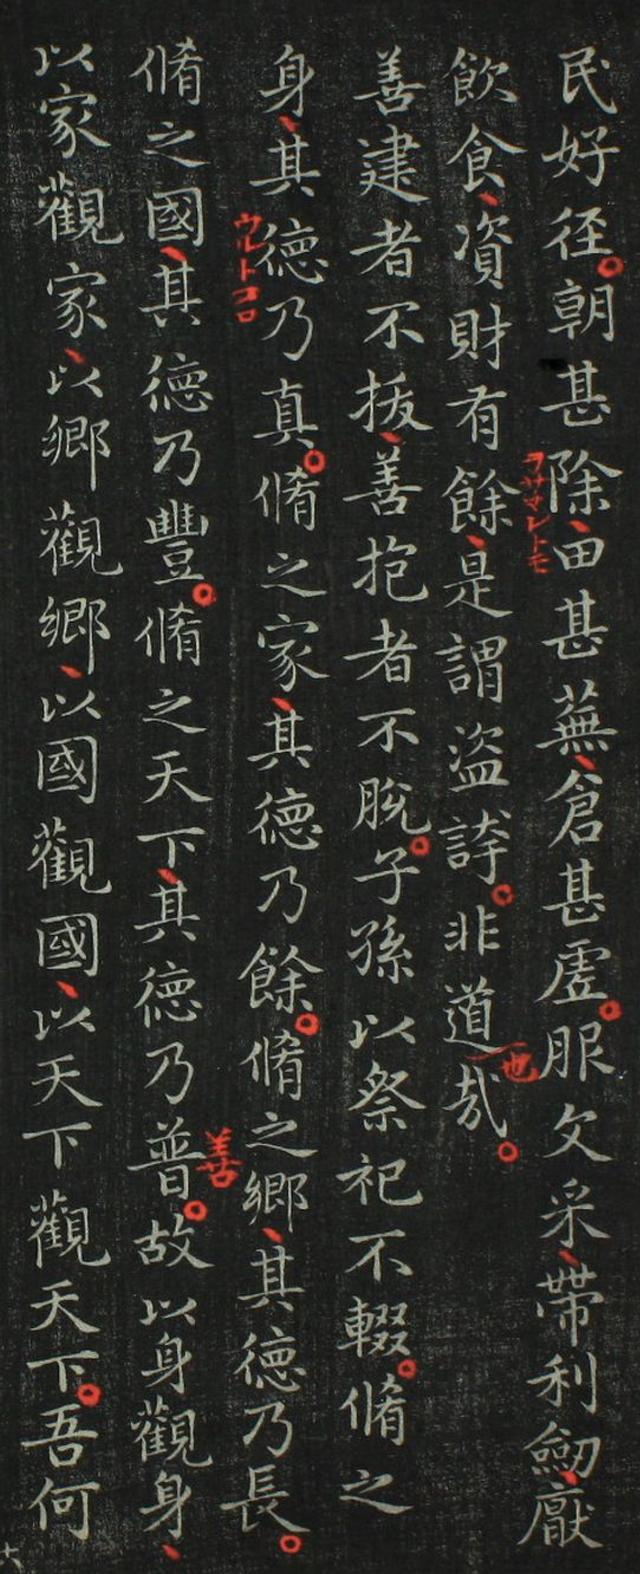 民好径朝甚除田甚蕪倉甚虚服文采帶利劒厭
ヲサマレトモ
飲食資財有餘是謂盜誇非道哉
也
善建者不拔善抱者不脫子孫以祭祀不輟脩之
身其德乃真脩之家其德乃餘脩之鄉其德乃長
ウルトコロ
脩之國其德乃豐脩之天下其德乃普故以身觀身
善
以家觀家以鄉觀鄉以國觀國以天下觀天下吾何
六